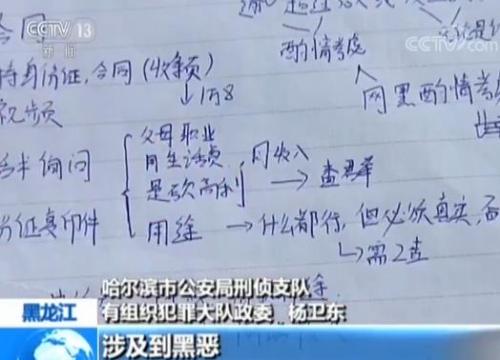 CCTV 13
新闻
CCTV.com
合同
酌情考虑
持身份证,合同(收条)
↓1万8
视频
网黑酌情考虑
父母职业
询问
月生活费 月收入
是否高利 → 查
份证复印件
用途 → 什么都行,但必须真实,否
↳需2查
哈尔滨市公安局刑侦支队
有组织犯罪大队政委 杨卫东
黑龙江
涉及到黑恶